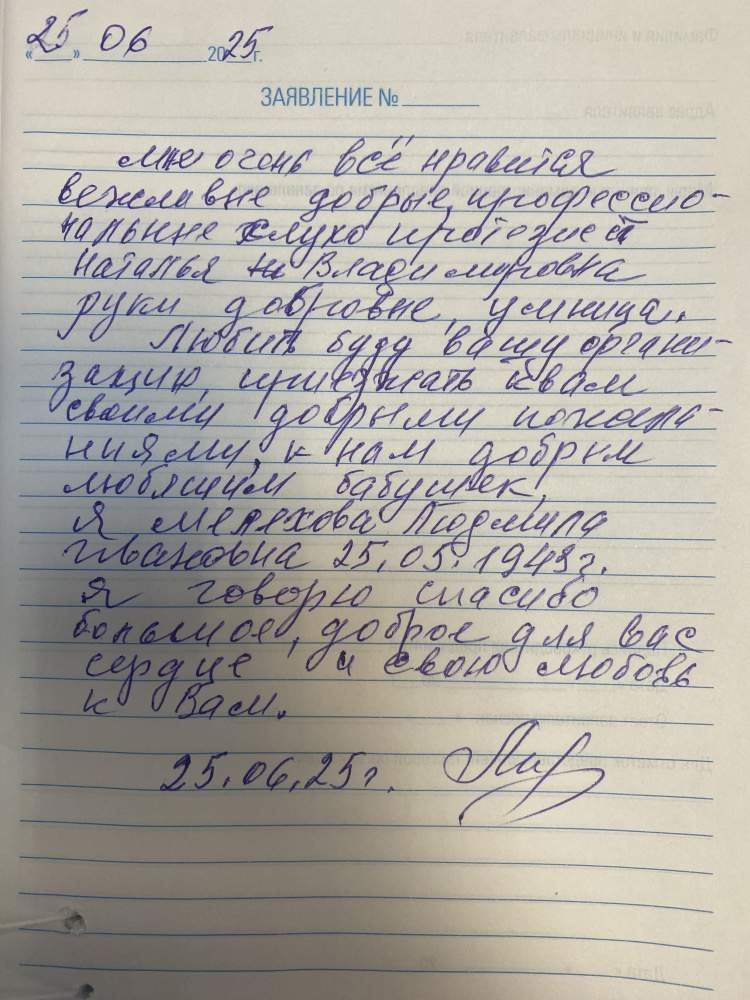 «25» 06 2025г.
ЗАЯВЛЕНИЕ №
Мне очень всё нравится
вежлавые добрые, профессио-
нальные слухо протезист
Наталья Владимировна
руки добровые, умница.
Любить буду вашу органи-
зацию, приезжать к вам
своими добрыми пожела-
ниями, к нам добрым
любящим бабушек,
Я Мелехова Людмила
Ивановна 25.05.1943г.
Я говорю спасибо
большое, доброе для вас
сердце и свою любовь
к Вам.
25.06.25г.